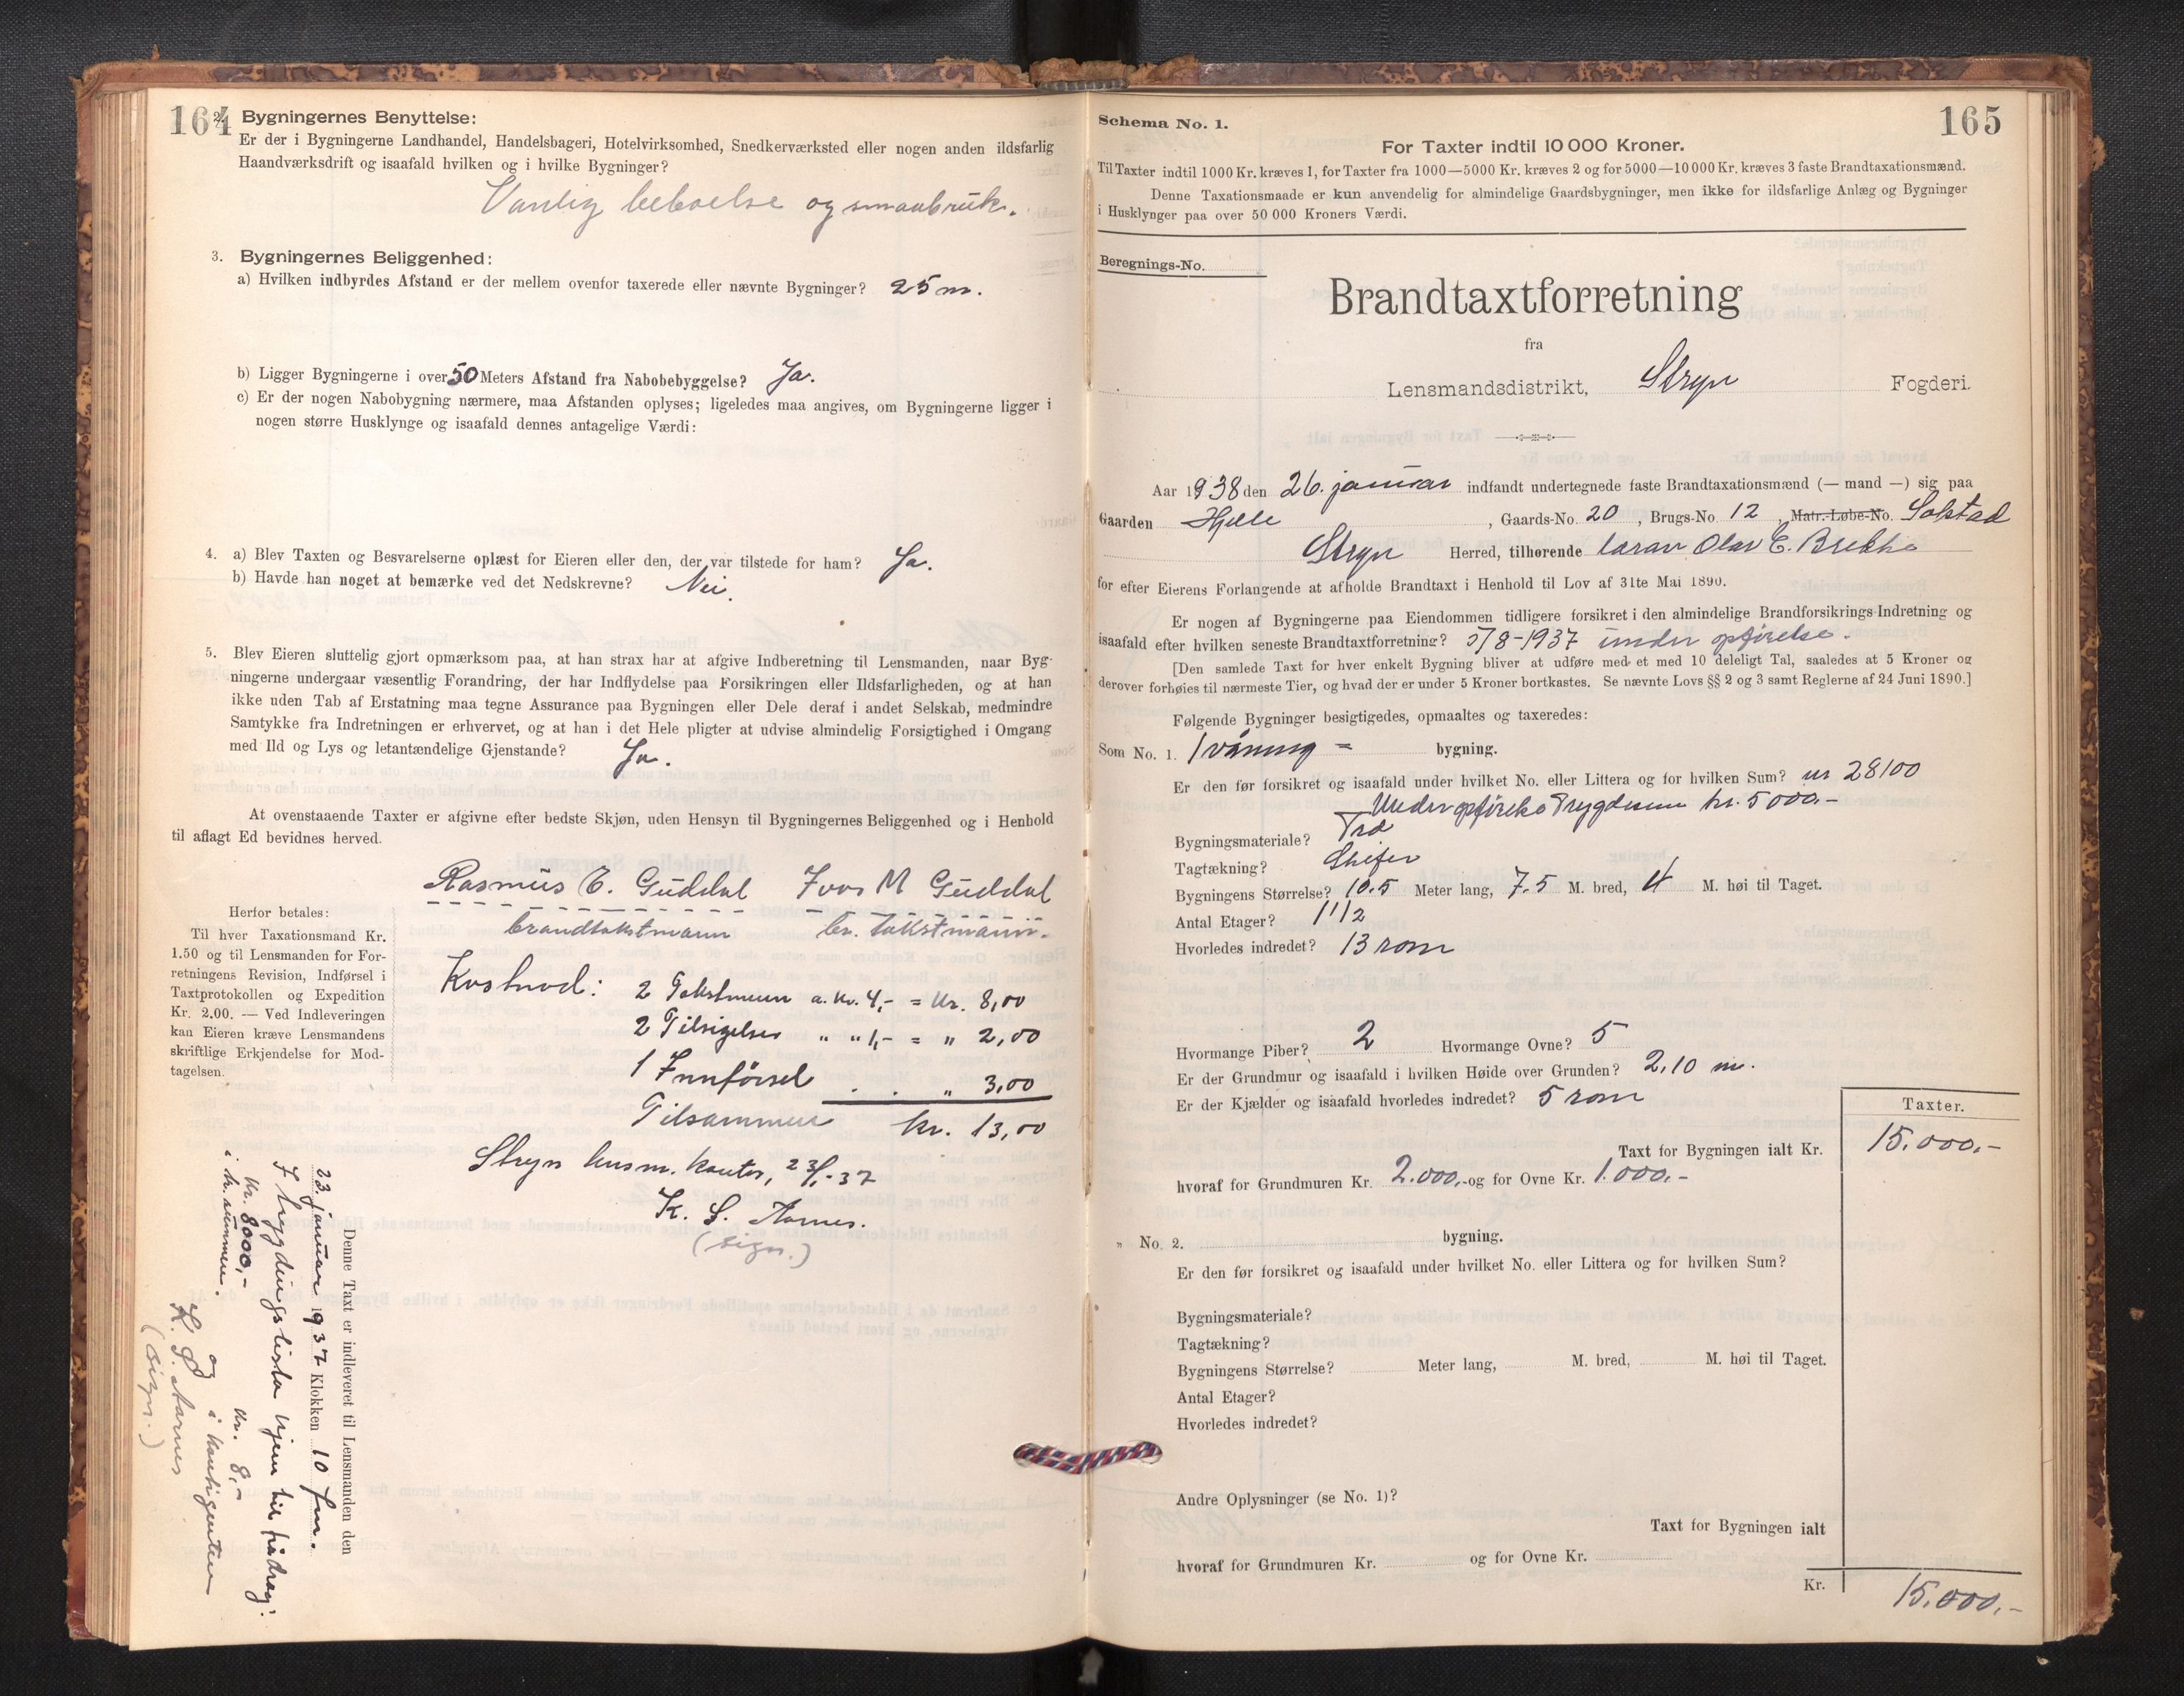 164
2. Bygningernes Benyttelse:
Er der i Bygningerne Landhandel, Handelsbageri, Hotelvirksomhed, Snedkerværksted eller nogen anden ildsfarlig
Haandværksdrift og isaafald hvilken og i hvilke Bygninger?
Vanlig beboelse og smaabruk.
3. Bygningernes Beliggenhed:
a) Hvilken indbyrdes Afstand er der mellem ovenfor taxerede eller nævnte Bygninger? 25 m.
b) Ligger Bygningerne i over 50 Meters Afstand fra Nabobebyggelse? Ja.
c) Er der nogen Nabobygning nærmere, maa Afstanden oplyses; ligeledes maa angives, om Bygningerne ligger i
nogen større Husklynge og isaafald dennes antagelige Værdi:
4. a) Blev Taxten og Besvarelserne oplæst for Eieren eller den, der var tilstede for ham? Ja.
b) Havde han noget at bemærke ved det Nedskrevne? Nei.
5. Blev Eieren sluttelig gjort opmærksom paa, at han strax har at afgive Indberetning til Lensmanden, naar Byg-
ningerne undergaar væsentlig Forandring, der har Indflydelse paa Forsikringen eller Ildsfarligheden, og at han
ikke uden Tab af Erstatning maa tegne Assurance paa Bygningen eller Dele deraf i andet Selskab, medmindre
Samtykke fra Indretningen er erhvervet, og at han i det Hele pligter at udvise almindelig Forsigtighed i Omgang
med Ild og Lys og letantændelige Gjenstande? Ja.
At ovenstaaende Taxter er afgivne efter bedste Skjøn, uden Hensyn til Bygningernes Beliggenhed og i Henhold
til aflagt Ed bevidnes herved.
Rasmus E. Guddal Ivar M Guddal
brandtakstmann br. takstmann.
Herfor betales:
Til hver Taxationsmand Kr.
1.50 og til Lensmanden for For-
retningens Revision, Indførsel i
Taxtprotokollen og Expedition
Kr. 2.00. — Ved Indleveringen
kan Eieren kræve Lensmandens
skriftlige Erkjendelse for Mod-
tagelsen.
Kostnad: 2 Takstmenn a. kr. 4,- = kr. 8,00
2 Tilsigelser " " 1,- = " 2,00
1 Innførsel . . " 3,00
Tilsammen kr. 13,00
Stryn lensm. kontor, 23/1-37
K. S. Aarnes.
(sign.)
Denne Taxt er indleveret til Lensmanden den
23. januar 1937 Klokken 10 fm.
I trygdingslista kjem til frådrag:
kr. 8000,- kr. 8,-
i tr. summen. og i kontigenten
K. S. Aarnes
(sign.)
165
Schema No. 1.
For Taxter indtil 10 000 Kroner.
Til Taxter indtil 1000 Kr. kræves 1, for Taxter fra 1000—5000 Kr. kræves 2 og for 5000—10 000 Kr. kræves 3 faste Brandtaxationsmænd.
Denne Taxationsmaade er kun anvendelig for almindelige Gaardsbygninger, men ikke for ildsfarlige Anlæg og Bygninger
i Husklynger paa over 50 000 Kroners Værdi.
Beregnings-No.
Brandtaxtforretning
fra
Lensmandsdistrikt, Stryn Fogderi.
Aar 1938 den 26. januar indfandt undertegnede faste Brandtaxationsmænd (— mand —) sig paa
Gaarden Hjelle, Gaards-No. 20, Brugs-No. 12, Matr.-Løbe-No. Solstad
Stryn Herred, tilhørende Olav E. Brekke
for efter Eierens Forlangende at afholde Brandtaxt i Henhold til Lov af 31te Mai 1890.
Er nogen af Bygningerne paa Eiendommen tidligere forsikret i den almindelige Brandforsikrings-Indretning og
isaafald efter hvilken seneste Brandtaxtforretning? 5/8-1937 under opførelse.
[Den samlede Taxt for hver enkelt Bygning bliver at udføre med et med 10 deleligt Tal, saaledes at 5 Kroner og
derover forhøies til nærmeste Tier, og hvad der er under 5 Kroner bortkastes. Se nævnte Lovs §§ 2 og 3 samt Reglerne af 24 Juni 1890.]
Følgende Bygninger besigtigedes, opmaaltes og taxeredes:
Som No. 1. 1 våning = bygning.
Er den før forsikret og isaafald under hvilket No. eller Littera og for hvilken Sum? nr 28100
Under opførelse Trygdesum kr. 5000.-
Bygningsmateriale? Tre
Tagtækning? Skifer
Bygningens Størrelse? 10.5 Meter lang, 7.5 M. bred, 4 M. høi til Taget.
Antal Etager? 1 1/2
Hvorledes indredet? 13 rom
Hvormange Piber? 2 Hvormange Ovne? 5
Er der Grundmur og isaafald i hvilken Høide over Grunden? 2,10 m.
Er der Kjælder og isaafald hvorledes indredet? 5 rom
Taxter.
Taxt for Bygningen ialt Kr. 15.000,-
hvoraf for Grundmuren Kr. 2.000,- og for Ovne Kr. 1.000,-
" No. 2. bygning.
Er den før forsikret og isaafald under hvilket No. eller Littera og for hvilken Sum?
Bygningsmateriale?
Tagtækning?
Bygningens Størrelse? Meter lang, M. bred, M. høi til Taget.
Antal Etager?
Hvorledes indredet?
Andre Oplysninger (se No. 1)?
Taxt for Bygningen ialt
hvoraf for Grundmuren Kr. og for Ovne Kr.
Kr. 15.000,-